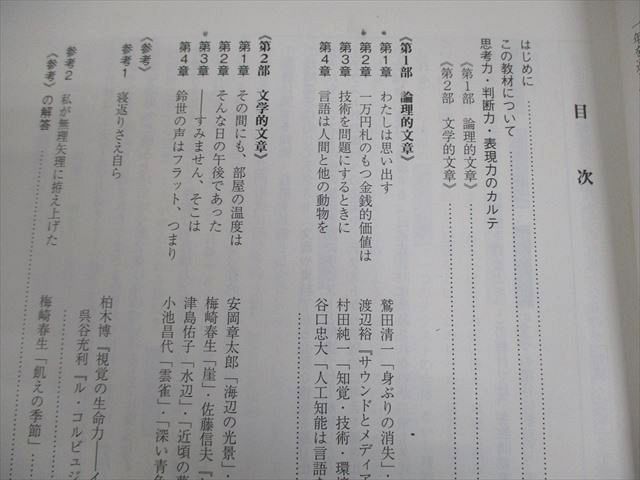 目次
はじめに
この教材について
思考力・判断力・表現力のカルテ
《第1部 論理的文章》
《第2部 文学的文章》
《第1部 論理的文章》
第1章 わたしは思い出す 鷲田清一「身ぶりの消失」・
第2章 一万円札のもつ金銭的価値は 渡辺裕『サウンドとメディア
第3章 技術を問題にするときに 村田純一「知覚・技術・環境
第4章 言語は人間と他の動物を 谷口忠大「人工知能は言語を
《第2部 文学的文章》
第1章 その間にも、部屋の温度は 安岡章太郎「海辺の光景」・
第2章 そんな日の午後であった 梅崎春生「崖」・佐藤信夫『
第3章 ――すみません、そこは 津島佑子「水辺」「近頃の
第4章 鈴世の声はフラット、つまり 小池昌代「雲雀」・「深い青色
《参考》
参考1 寝返りさえ自ら 柏木博『視覚の生命力――イ
呉谷充利『ル・コルビュジ
参考2 私が無理矢理に拵え上げた 梅崎春生「飢えの季節」
《参考》の解答